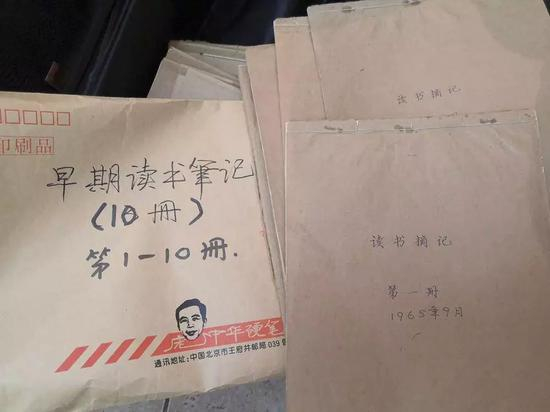 印刷品
早期读书筆记
(10册)
第1—10册.
中华硬笔
通讯地址:中国北京市王府井邮局039
读书摘记
读书摘记
第一册
1965年9月